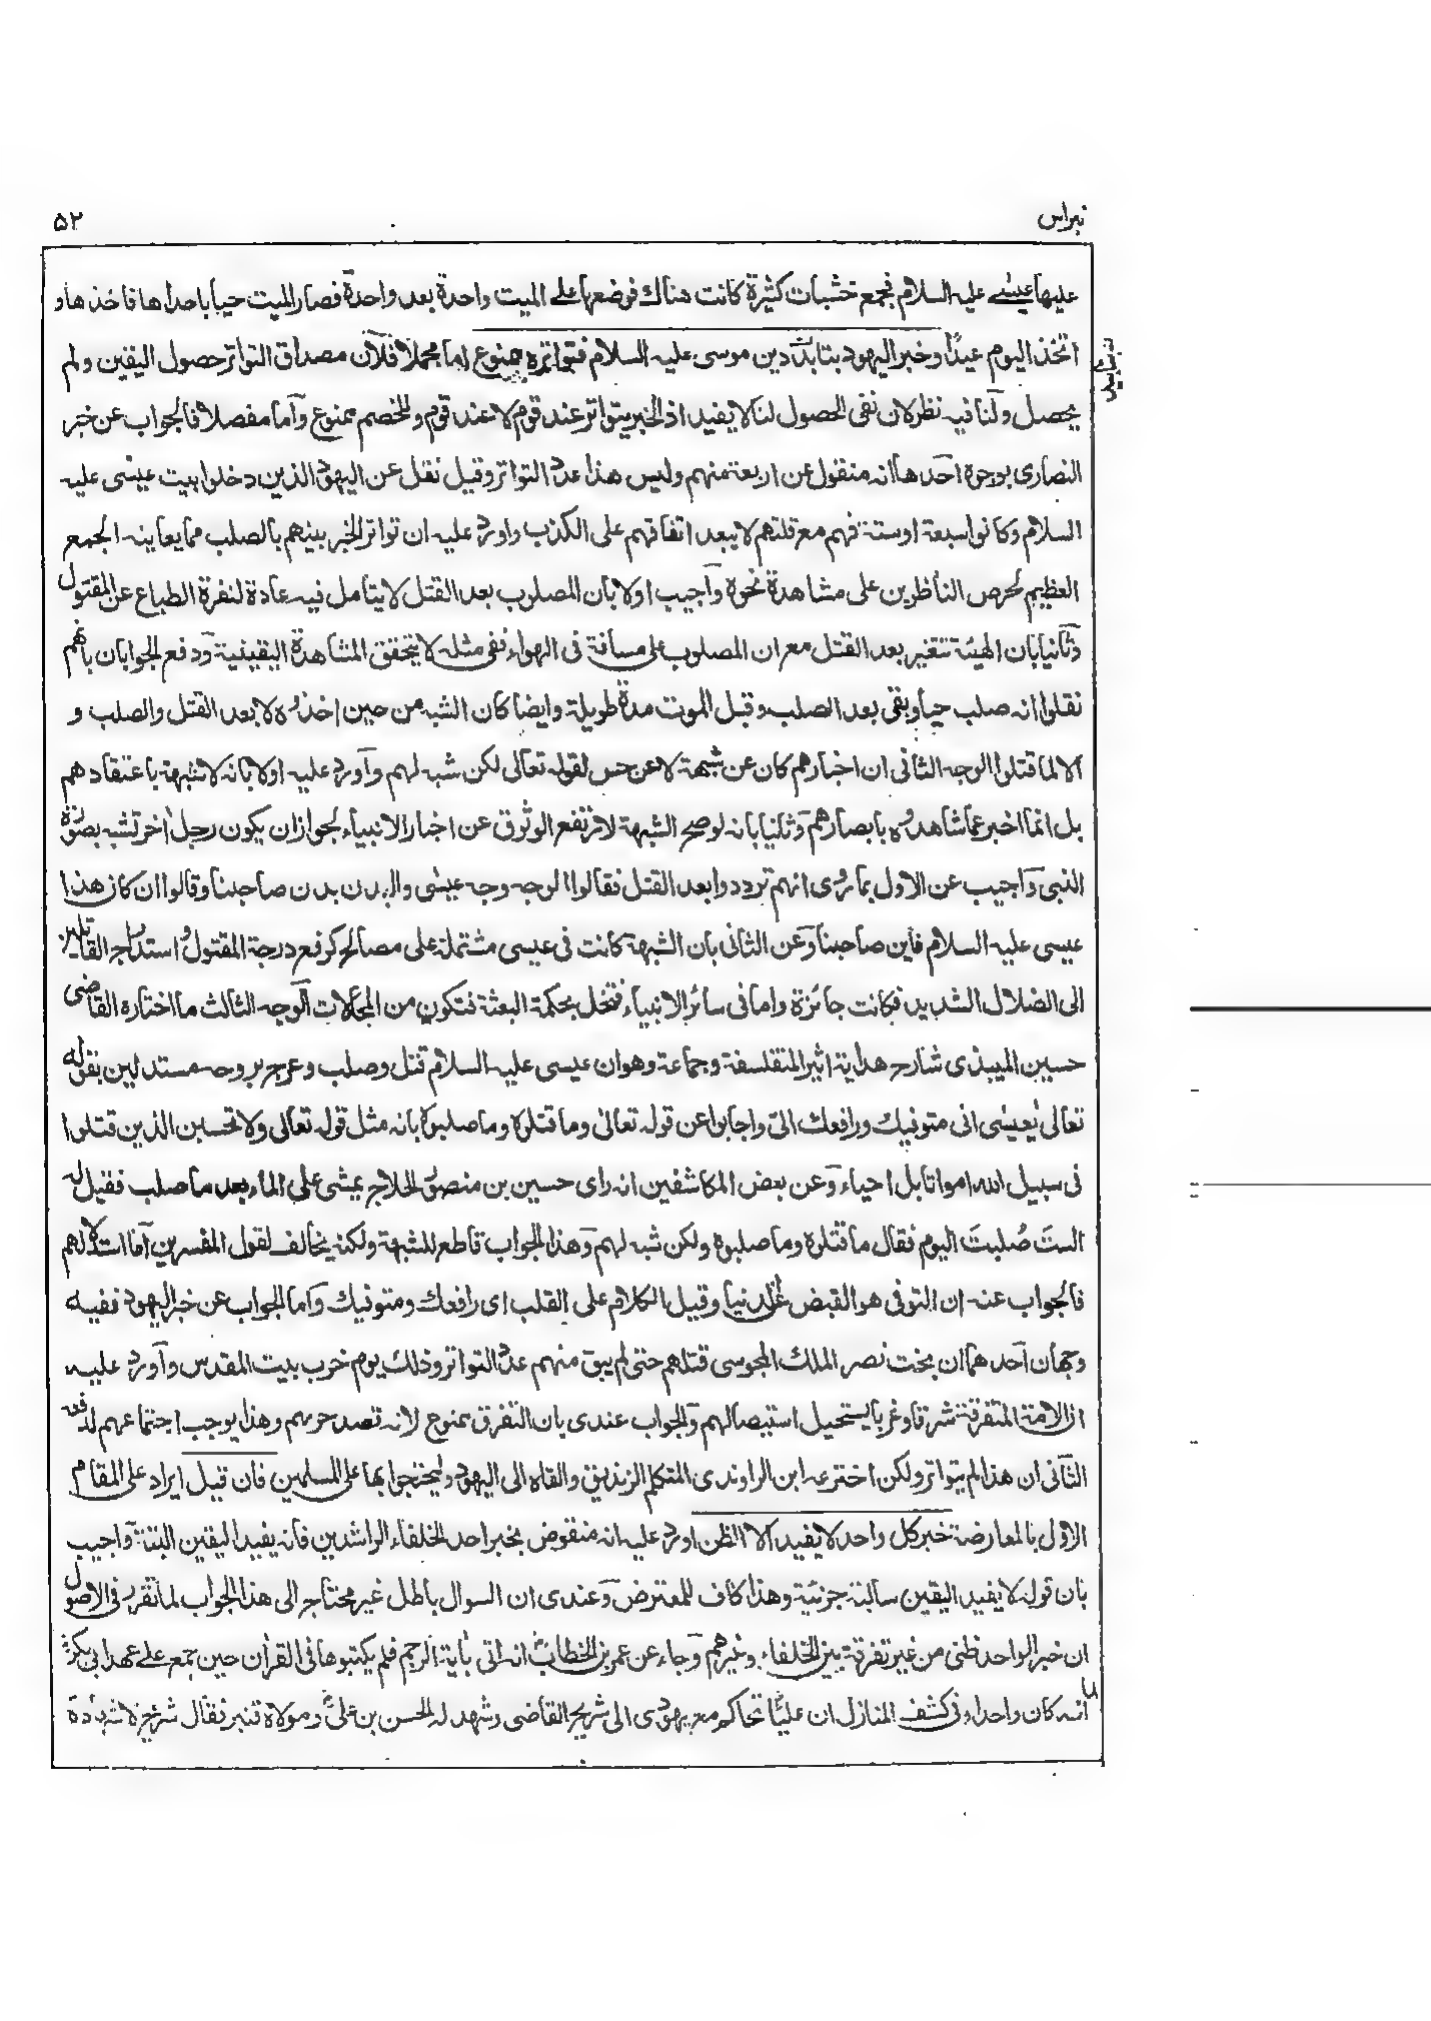 نبراس
۵۲
عليها عيسى عليه السلام فجمع خشبات كثيرة كانت هناك فوضعها على الميت واحدة بعد واحدة فصار الميت حيا باحداها فاخذها و
اتخذ اليوم عيدًا وخبر اليهود بتابيد دين موسى عليه السلام فتواتره ممنوع اما مجملا فلان مصداق التواتر حصول اليقين ولم
يحصل ولنا فيه نظر لان نفى الحصول لنا لا يفيد اذ الخبر يتواتر عند قوم لا عند قوم وللخصم ممنوع واما مفصلا فالجواب عن خبر
النصارى بوجوه احدها انه منقول عن اربعة منهم وليس هذا عدد التواتر وقيل نقل عن اليهود الذين دخلوا بيت عيسى عليه
السلام وكانوا سبعة او ستة فهم مع قلتهم لا يبعد اتفاقهم على الكذب واورد عليه ان تواتر الخبر بينهم بالصلب مما يعاينه الجمع
العظيم لحرص الناظرين على مشاهدة نحوه واجيب اولا بان المصلوب بعد القتل لا يتامل فيه عادة لنفرة الطباع عن المقتول
وثانيا بان الهيئة تتغير بعد القتل مع ان المصلوب على مسافة فى الهواء ففى مثله لا يتحقق المشاهدة اليقينية ودفع الجوابان بانهم
نقلوا انه صلب حيا وبقى بعد الصلب وقبل الموت مدة طويلة وايضا كان الشبه من حين اخذوه لا بعد القتل والصلب و
الا لما قتلوا الوجه الثانى ان اخبارهم كان عن شبهة لا عن حس لقوله تعالى لكن شبه لهم واورد عليه اولا بانه لا شبهة باعتقادهم
بل انما اخبر عما شاهدوه بابصارهم وثانيا بانه لو صح الشبهة لارتفع الوثوق عن اخبار الانبياء لجواز ان يكون رجل اخر تشبه بصورة
النبى واجيب عن الاول بما روى انهم ترددوا بعد القتل فقالوا الوجه وجه عيسى والبدن بدن صاحبنا وقالوا ان كان هذا
عيسى عليه السلام فاين صاحبنا وعن الثانى بان الشبهة كانت فى عيسى مشتملة على مصالح كرفع درجة المقتول واستدراج القاتلين
الى الضلال الشديد فكانت جائزة واما فى سائر الانبياء فتخل بحكمة البعثة فتكون من المحالات الوجه الثالث ما اختاره القاضى
حسين الميبذى شارح هداية اثير المتفلسفة وجماعة وهو ان عيسى عليه السلام قتل وصلب وعرج بروحه مستدلين بقوله
تعالى يعيسى انى متوفيك ورافعك الىّ واجابوا عن قوله تعالى وما قتلوه وما صلبوه بانه مثل قوله تعالى ولا تحسبن الذين قتلوا
فى سبيل الله امواتا بل احياء وعن بعض المكاشفين انه راى حسين بن منصور الحلاج يمشى على الماء بعد ما صلب فقيل له
الستَ صُلبتَ اليوم فقال ما قتلوه وما صلبوه ولكن شبه لهم وهذا الجواب قاطع للشبهة ولكنه يخالف لقول المفسرين اما استدلالهم
فالجواب عنه ان التوفى هو القبض عن الدنيا وقيل الكلام على القلب اى رافعك ومتوفيك واما الجواب عن خبر اليهود ففيه
وجهان احدهما ان بخت نصر الملك المجوسى قتلهم حتى لم يبق منهم عدد التواتر وذلك يوم خرب بيت المقدس واورد عليه
ان الامة المتفرقة شرقا وغربا يستحيل استيصالهم والجواب عندى بان التفرق ممنوع لانه قصد حربهم وهذا يوجب اجتماعهم لدفعه
الثانى ان هذا لم يتواتر ولكن اخترعه ابن الراوندى المتكلم الزنديق والقاه الى اليهود ليحتجوا بها على المسلمين فان قيل ايراد على المقام
الاول بالمعارضة خبر كل واحد لا يفيد الا الظن اورد عليه انه منقوض بخبر احد الخلفاء الراشدين فانه يفيد اليقين البتة واجيب
بان قوله لا يفيد اليقين سالبة جزئية وهذا كاف للمعترض وعندى ان السوال باطل غير محتاج الى هذا الجواب لما تقرر فى الاصول
ان خبر الواحد ظنى من غير تفرقة بين الخلفاء وغيرهم وجاء عن عمر بن الخطاب انه اتى بآية الرجم فلم يكتبوها فى القرآن حين جمع على عهد ابى بكر
انه كان واحدا وفى كشف المنازل ان عليًا تحاكم مع يهودى الى شريح القاضى وشهد له الحسن بن على ومولاه قنبر فقال شريح لا شهادة